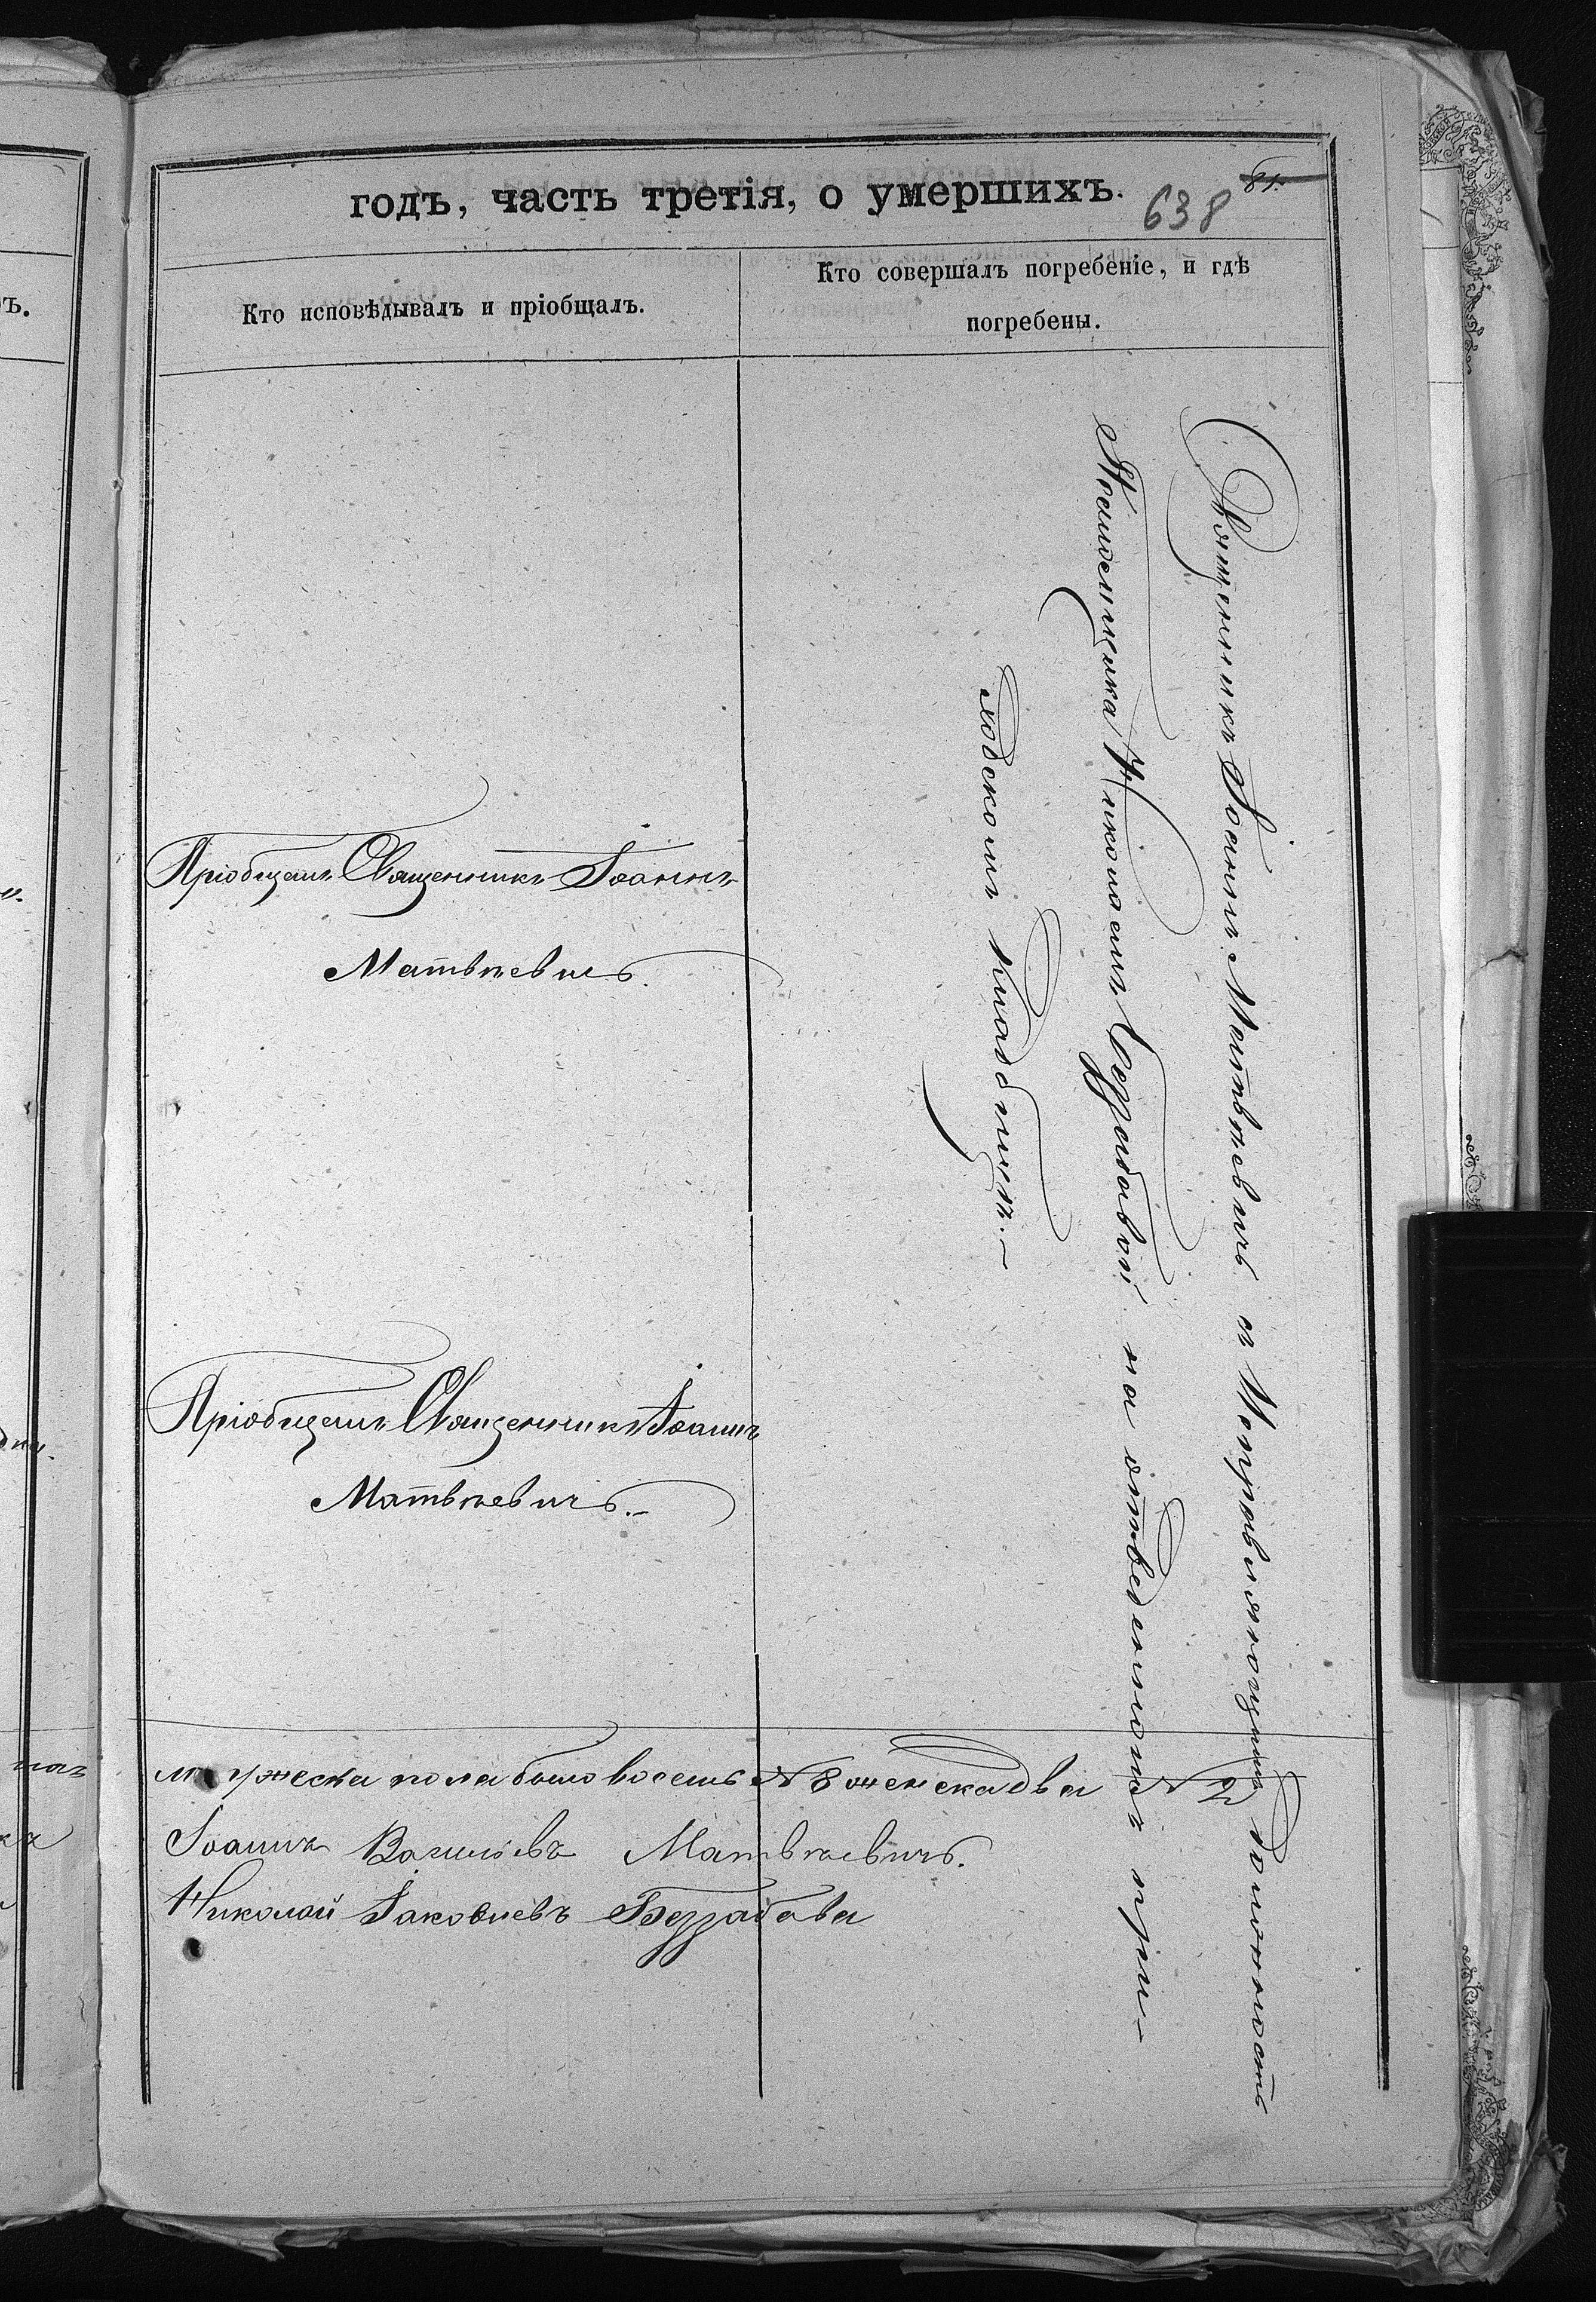 годъ, часть третія, о умершихъ.
638
Кто исповѣдывалъ и пріобщалъ.
Кто совершалъ погребеніе, и гдѣ
погребены.
Пріобщалъ Священникъ Іоаннъ
Матвѣевичъ.
Пріобщалъ Священникъ Іоаннъ
Матвѣевичъ.
Священникъ Іоаннъ Матвѣевичъ съ Исправляющимъ Должность
Псаломщика Николаемъ Беззабавой на отведенномъ при-
ходскомъ кладбищѣ.
мужеска пола было восемь № 8 женска два № 2
Іоаннъ Васильевъ Матвѣевичъ.
Николай Іаковлевъ Беззабава